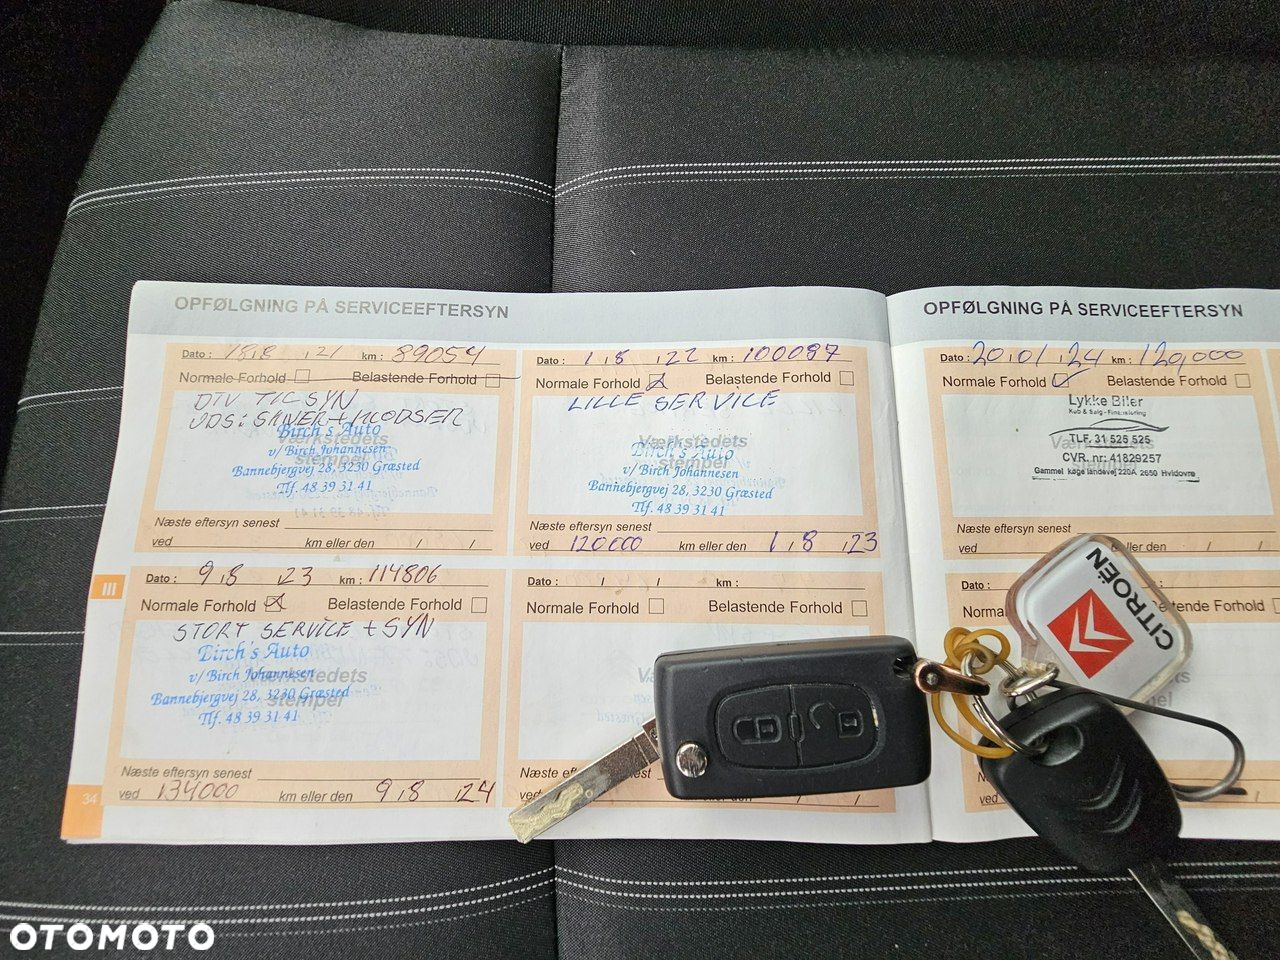 OPFØLGNING PÅ SERVICEEFTERSYN
Dato : 18 8 , 21 km : 89054
Normale Forhold Belastende Forhold
DIV TIL SYN
Birch's Auto
v/ Birch Johannesen
Bannebjergvej 28, 3230 Græsted
Tlf. 48 39 31 41
Værkstedets
stempel
Næste eftersyn senest
ved km eller den / /
Dato : 1 , 8 , 22 km : 100097
Normale Forhold Belastende Forhold
LILLE SERVICE
Værkstedets
stempel
Birch's Auto
v/ Birch Johannesen
Bannebjergvej 28, 3230 Græsted
Tlf. 48 39 31 41
Næste eftersyn senest
ved 120000 km eller den 1 , 8 , 23
III
Dato : 9 , 8 , 23 km : 114806
Normale Forhold Belastende Forhold
STORT SERVICE + SYN
Birch's Auto
v/ Birch Johannesen
Værkstedets
Bannebjergvej 28, 3230 Græsted
stempel
Tlf. 48 39 31 41
Næste eftersyn senest
ved 134000 km eller den 9 , 8 , 24
34
Dato : / / km :
Normale Forhold Belastende Forhold
Næste
ved
OPFØLGNING PÅ SERVICEEFTERSYN
Dato : 20 , 01 , 24 km : 120,000
Normale Forhold Belastende Forhold
Lykke Biler
Køb & Salg - Finansiering
TLF. 31 525 525
CVR. nr: 41829257
Gammel køge landevej 220A 2650 Hvidovre
Værkstedets
stempel
Næste eftersyn senest
ved km eller den / /
Dato
Norm
Næste
ved
CITROËN
OTOMOTO